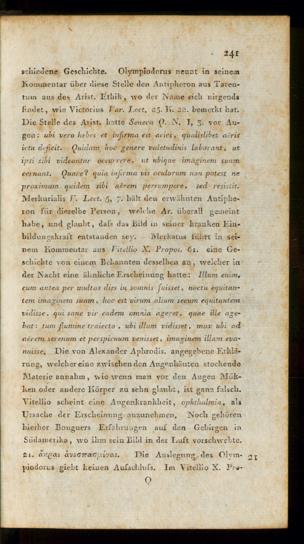 241
schiedene Geschichte. Olympiodorus nennt in seinem
Kommentar über diese Stelle den Antipheron aus Taren-
tum aus des Arist. Ethik, wo der Name sich nirgends
findet, wie Victorius Var. Lect. 25. K. 22. bemerkt hat.
Die Stelle des Arist. hatte Seneca Q. N. I, 3. vor Au-
gen: ubi vero hebes et infirma est acies, qualislibet aëris
ictu deficit. Quidam hoc genere valetudinis laborant, ut
ipsi sibi videantur occurrere, ut ubique imaginem suam
cernant. Quare? quia infirma vis oculorum non potest ne
proximum quidem sibi aërem perrumpere, sed resistit.
Merkurialis V. Lect. 5, 7. hält den erwähnten Antiphe-
ron für dieselbe Person, welche Ar. überall gemeint
habe, und glaubt, dafs das Bild in seiner kranken Ein-
bildungskraft entstanden sey. Merkatus führt in sei-
nem Kommentar aus Vitellio X. Propos. 61. eine Ge-
schichte von einem Bekannten desselben an, welcher in
der Nacht eine ähnliche Erscheinung hatte: Illum enim,
cum antea per multas dies in somnis fuisset, noctu equitan-
tem imaginem suam, hoc est virum alium secum equitantem
vidisse, qui sane vir eadem omnia ageret, quae ille age-
bat: tum flumine traiecto, ubi illum vidisset, mox ubi ad
aërem serenum et perspicuum venisset, imaginem illam eva-
nuisse. Die von Alexander Aphrodis. angegebene Erklä-
rung, welcher eine zwischen den Augenhäuten stockende
Materie annahm, wie wenn man vor den Augen Mük-
ken oder andere Körper zu sehn glaubt, ist ganz falsch.
Vitellio scheint eine Augenkrankheit, ophthalmia, als
Ursache der Erscheinung anzunehmen. Noch gehören
hierher Bouguers Erfahrungen auf den Gebirgen in
Südamerika, wo ihm sein Bild in der Luft vorschwebte.
21. ἄκραι ἀνεσπασμέναι. Die Auslegung des Olym- 21
piodorus giebt keinen Aufschlufs. Im Vitellio X. Pro-
Q